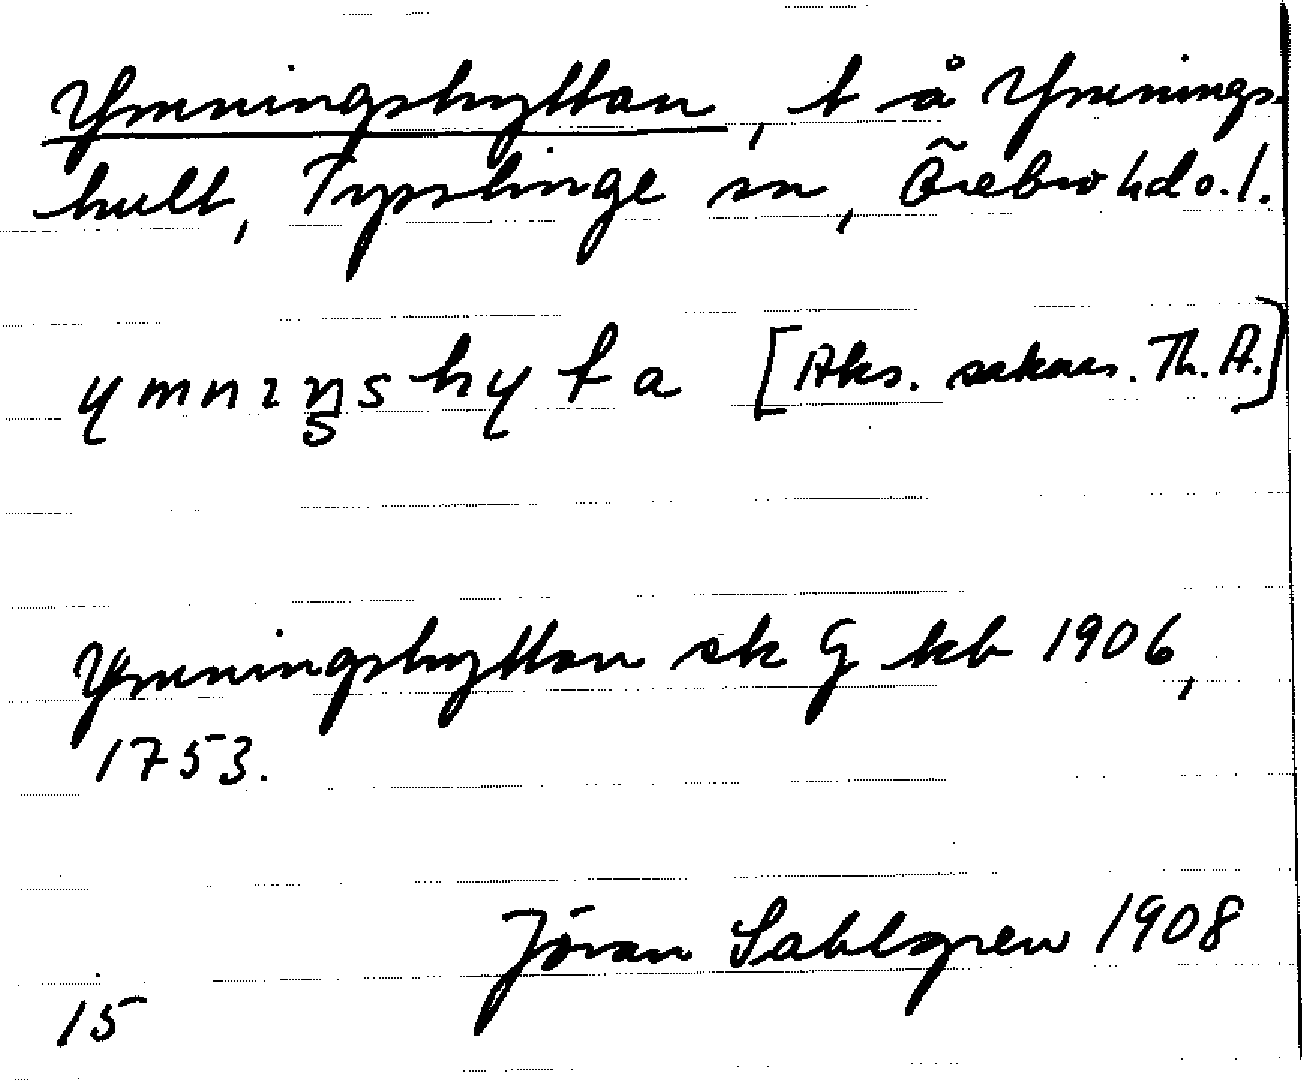 Ymningshyttan, t å Ymnings-
hult, Tysslinge sn, Örebro hd o. l.
ymnıŋshyta [Aks. saknas. Th. A.]
Ymningshyttan sk G kb 1906,
1753.
Jöran Sahlgren 1908
15